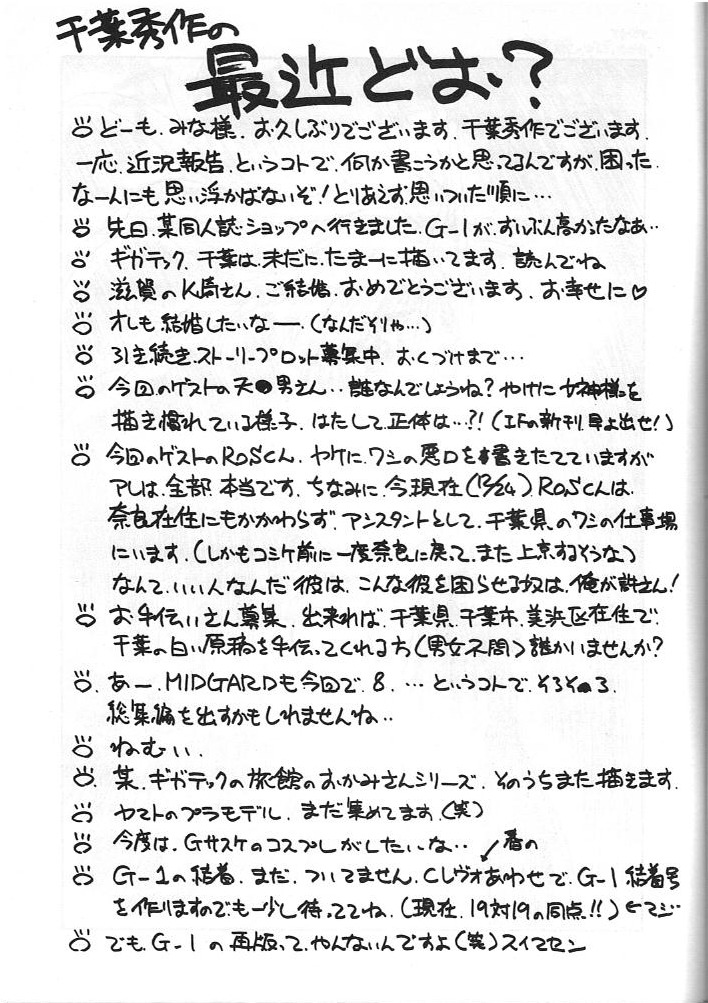 千葉秀作の
最近どお?
どーも、みな様、お久しぶりでございます、千葉秀作でございます、
一応、近況報告、というコトで、何か書こうかと思ってるんですが、困った、
なーんにも思い浮かばないぞ!とりあえず、思いついた順に…
先日、某同人誌ショップへ行きました、G-1が、ずいぶん高かったなあ…
ギガテック、千葉は、未だに、たまーに描いてます、読んでね
滋賀のK崎さん、ご結婚、おめでとうございます、お幸せに♡
オレも結婚したいなー、(なんだそりゃ…)
引き続き、ストーリープロット募集中、おくづけまで…
今回のゲストの天●男さん‥誰なんでしょうね?やけに女神様を
描き慣れている様子、はたして、正体は…?!(IFの新刊、早よ出せ!)
今回のゲストのROSCん、ヤケに、ワシの悪口を書きたてていますが
アレは、全部、本当です、ちなみに、今現在(12/24)、ROSCんは、
奈良在住にもかかわらず、アシスタントとして、千葉県のワシの仕事場
にいます、(しかもコミケ前に一度奈良に戻って、また上京するそうな)
なんて、いい人なんだ彼は、こんな彼を困らせる奴は、俺が許さん!
お手伝いさん募集、出来れば、千葉県、千葉市、美浜区在住で、
千葉の白い原稿を手伝ってくれる方(男女不問)誰かいませんか?
あー、MIDGARDも今回で、8、…というコトで、そろそろ、
総集編を出すかもしれませんね‥
ねむい、
某、ギガテックの旅館のおかみさんシリーズ、そのうちまた描きます、
ヤマトのプラモデル、まだ集めてます、(笑)
今度は、Gサスケのコスプレがしたいな‥
春の
G-1の結着、まだ、ついてません、Cレヴォあわせで、G-1結着号
を作りますのでも一少し待っててね、(現在、19対19の同点!!)←マジ
でも、G-1の再版って、やんないんですよ(笑)スイマセン